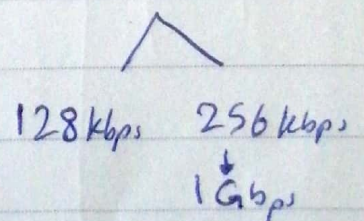 128kbps 256kbps
1Gbps